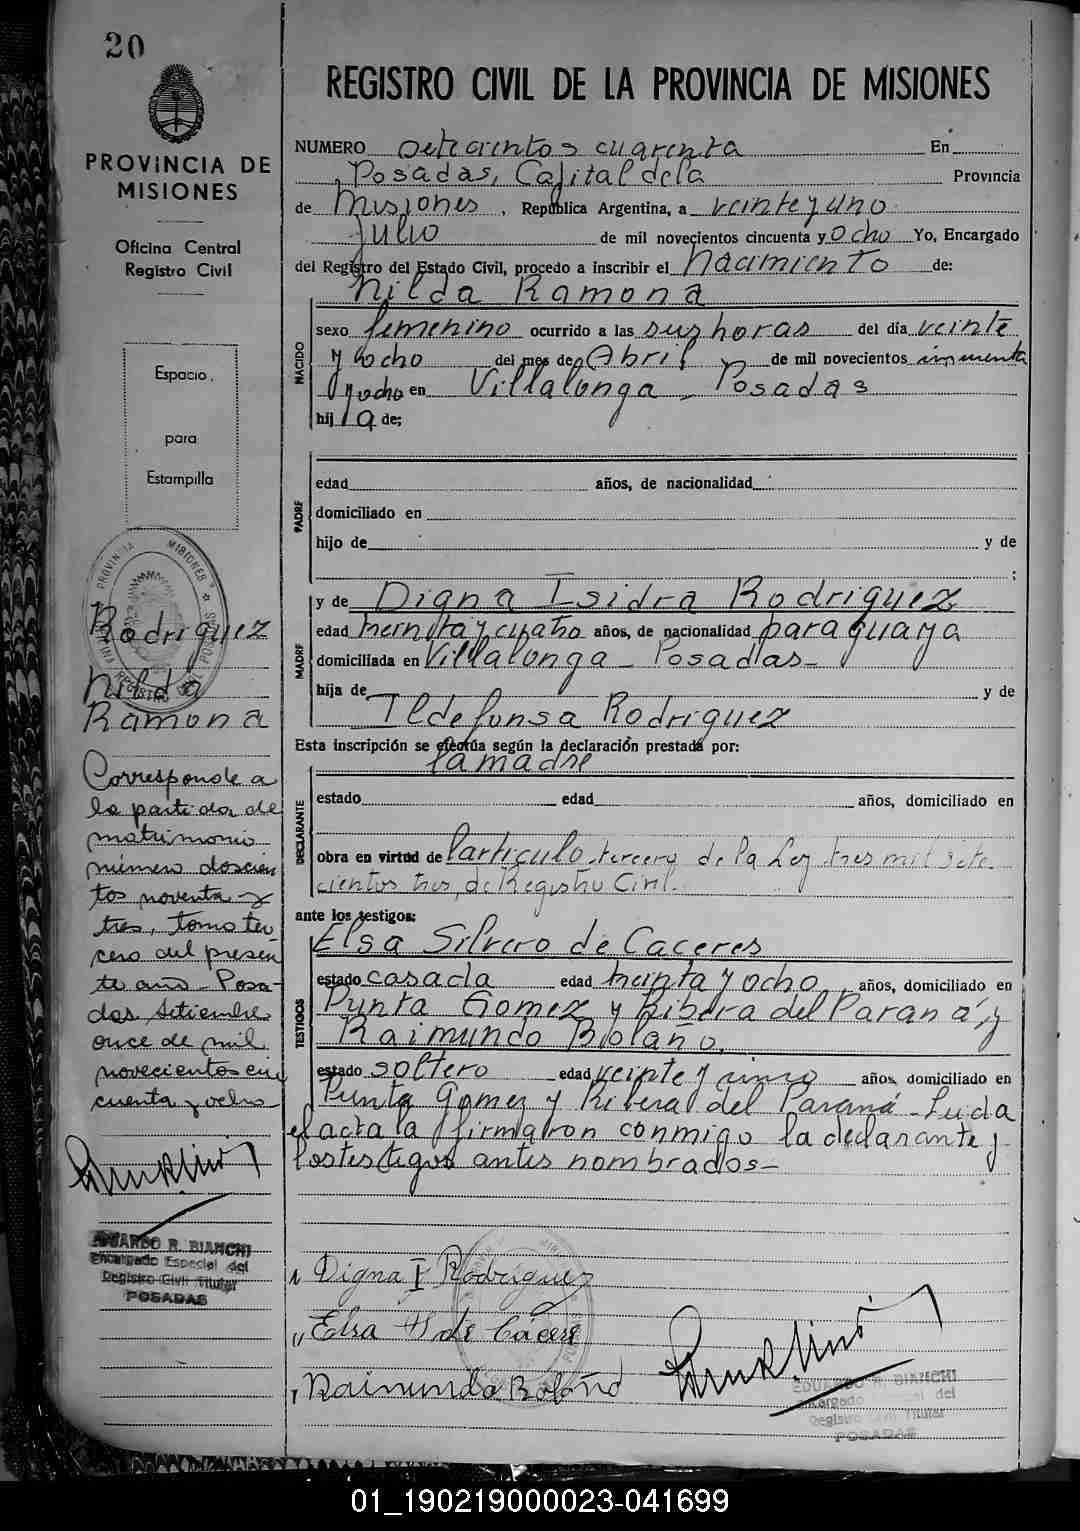 20
PROVINCIA DE
MISIONES
Oficina Central
Registro Civil
Espacio
para
Estampilla
Rodriguez
Nilda
Ramona
Corresponde a
la partida de
matrimonio
número doscien
tos noventa y
tres, tomo ter
cero del presen
te año - Posa-
das Setiembre
once de mil
novecientos cin
cuenta y ocho
EDUARDO R. BIANCHI
Encargado Especial del
Registro Civil Titular
POSADAS
REGISTRO CIVIL DE LA PROVINCIA DE MISIONES
NUMERO setecientos cuarenta En
Posadas, Capital dela Provincia
de Misiones, República Argentina, a veinte y uno
Julio de mil novecientos cincuenta y Ocho Yo, Encargado
del Registro del Estado Civil, procedo a inscribir el Nacimiento de:
NACIDO
Nilda Ramona
sexo femenino ocurrido a las seis horas del día veinte
y ocho del mes de Abril de mil novecientos cincuenta
y ocho en Villalonga - Posadas
hija de;
PADRE
edad años, de nacionalidad
domiciliado en
hijo de y de
;
MADRE
y de Digna Isidra Rodriguez
edad treinta y cuatro años, de nacionalidad paraguaya
domiciliada en Villalonga - Posadas -
hija de y de
Ildefonsa Rodriguez
Esta inscripción se efectúa según la declaración prestada por:
la madre
DECLARANTE
estado edad años, domiciliado en
obra en virtud de l'articulo tercero de la Ley tres mil sete
cientos tres, de Registro Civil.
ante los testigos:
TESTIGOS
Elsa Silvero de Caceres
estado casada edad treinta y ocho años, domiciliado en
Punta Gomez y Ribera del Paraná, y
Raimundo Bolaño.
estado soltero edad veinte y cinco años, domiciliado en
Punta Gomez y Ribera del Paraná - Leida
el acta la firmaron conmigo la declarante y
los testigos antes nombrados -
Digna I Rodriguez
Elsa de Cácere
Raimundo Bolaño
EDUARDO R. BIANCHI
Encargado Especial del
Registro Civil Titular
POSADAS
01_190219000023-041699